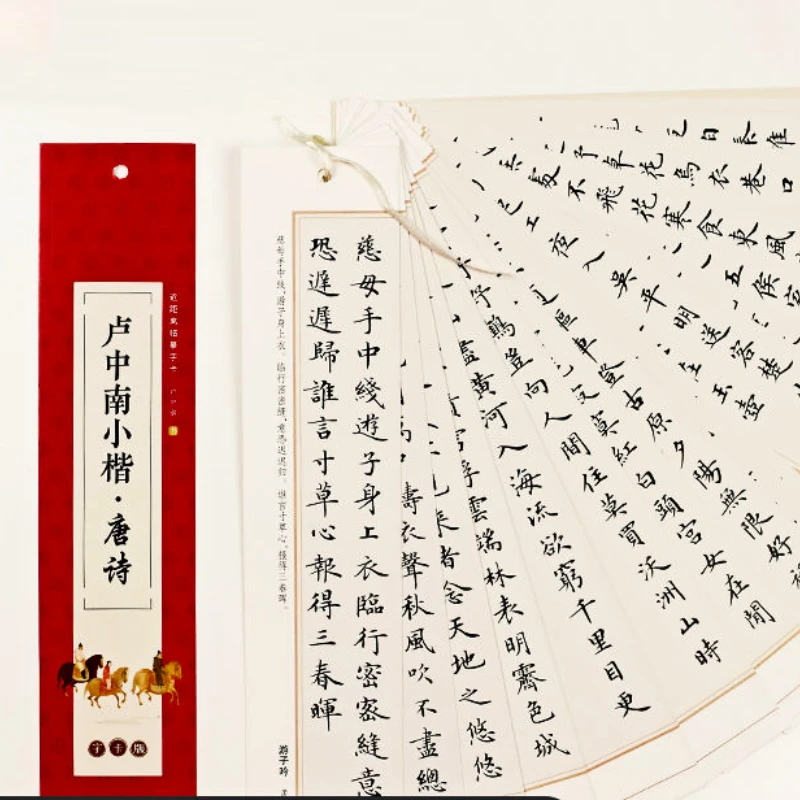 卢中南小楷·唐诗
近距离临摹字卡
字卡版
慈母手中綫遊子身上衣臨行密密縫意
恐遲遲歸誰言寸草心報得三春暉
慈母手中线，游子身上衣。临行密密缝，意恐迟迟归。谁言寸草心，报得三春晖。
游子吟
衣聲秋風吹不盡總
者念天地之悠悠
浮雲端林表明霽色城
盡黃河入海流欲窮千里目更
豈向人間住莫買沃洲山時
紅白頭宮女在閒
驅車登古原夕陽無限好
夜入吳平明送客楚
玉壺
處不飛花寒食東風
五侯家
草花烏衣巷口